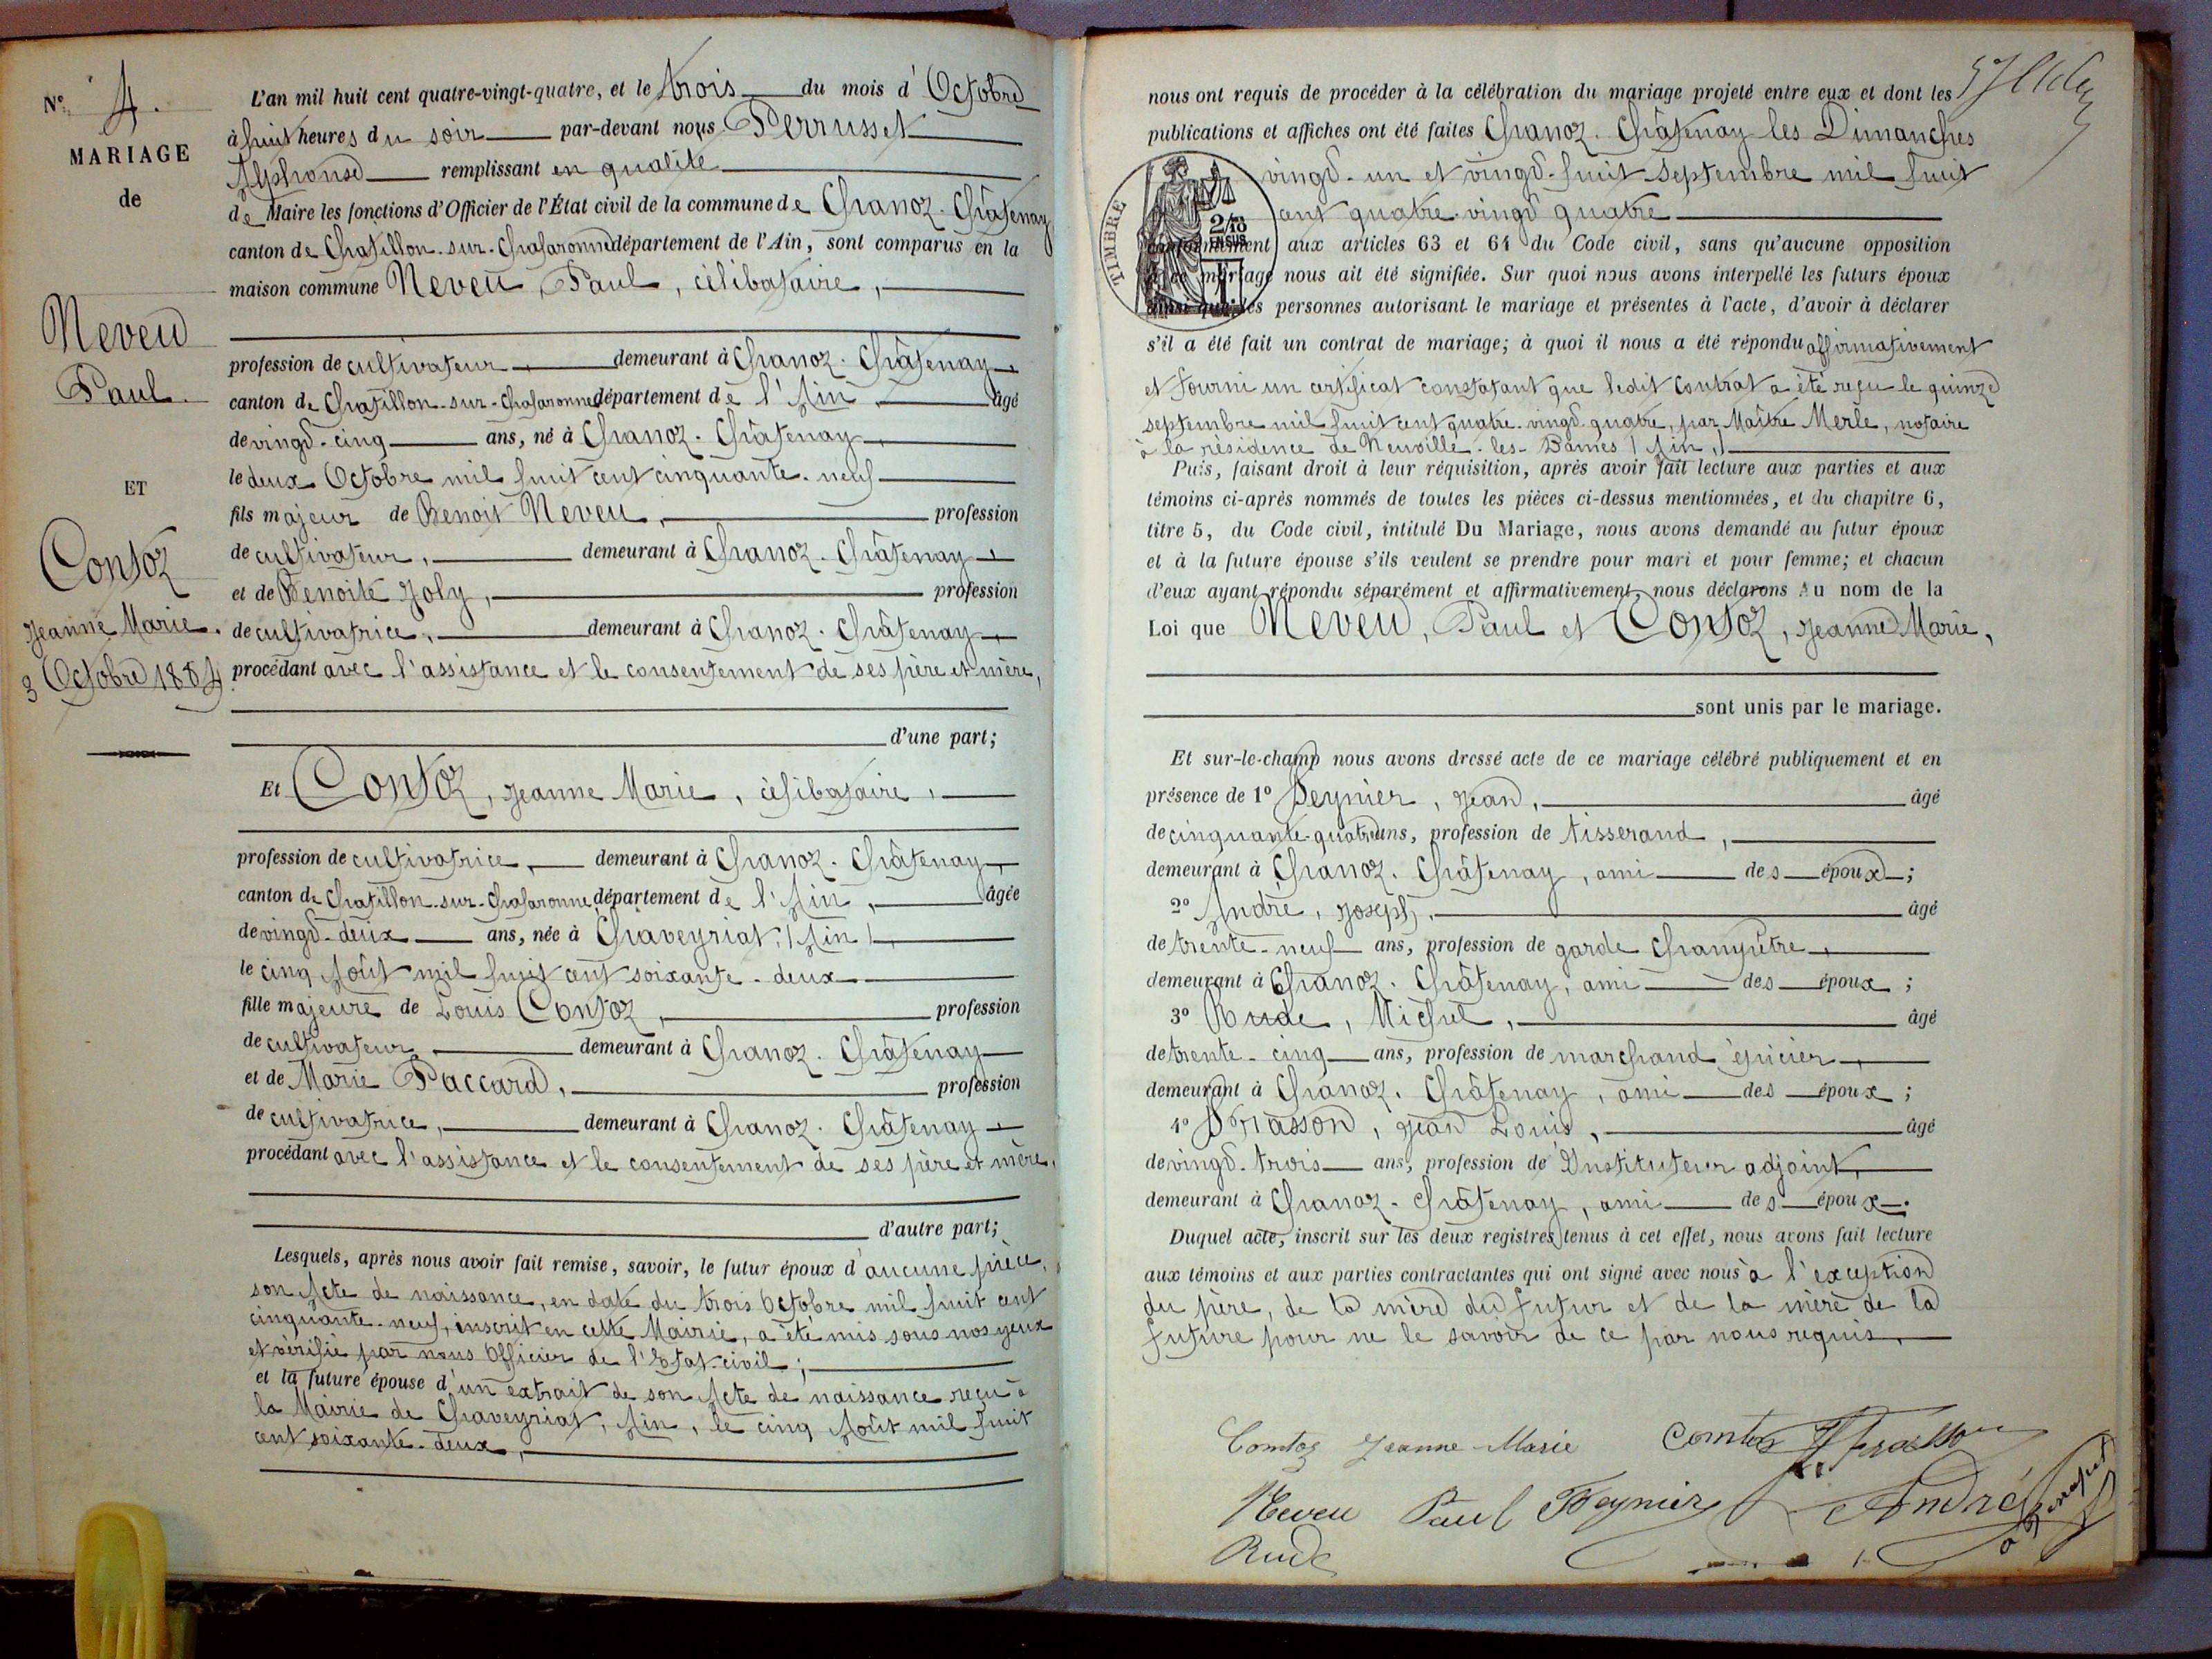 N° 4.
MARIAGE
de
Neveu
Paul.
ET
Contoz
Jeanne Marie.
3 Octobre 1884
L'an mil huit cent quatre-vingt-quatre, et le trois du mois d'Octobre
à huit heures du soir par-devant nous Perrusset
Alphonse remplissant en qualité
de Maire les fonctions d'Officier de l'État civil de la commune de Chanoz-Châtenay
canton de Chatillon-sur-Chalaronne département de l'Ain, sont comparus en la
maison commune Neveu, Paul, célibataire,
profession de cultivateur, demeurant à Chanoz-Châtenay,
canton de Chatillon-sur-Chalaronne département de l'Ain, âgé
de vingt-cinq ans, né à Chanoz-Châtenay,
le deux Octobre mil huit cent cinquante-neuf
fils majeur de Benoit Neveu, profession
de cultivateur, demeurant à Chanoz-Châtenay,
et de Benoite Joly, profession
de cultivatrice, demeurant à Chanoz-Châtenay,
procédant avec l'assistance et le consentement de ses père et mère,
d'une part;
Et Contoz, Jeanne Marie, célibataire,
profession de cultivatrice, demeurant à Chanoz-Châtenay,
canton de Chatillon-sur-Chalaronne département de l'Ain, âgée
de vingt-deux ans, née à Chaveyriat, (Ain),
le cinq Août mil huit cent soixante-deux
fille majeure de Louis Contoz, profession
de cultivateur, demeurant à Chanoz-Châtenay
et de Marie Paccard, profession
de cultivatrice, demeurant à Chanoz-Châtenay
procédant avec l'assistance et le consentement de ses père et mère,
d'autre part;
Lesquels, après nous avoir fait remise, savoir, le futur époux d'aucune pièce,
son Acte de naissance, en date du trois Octobre mil huit cent
cinquante-neuf, inscrit en cette Mairie, a été mis sous nos yeux
et vérifié par nous Officier de l'Etat-civil;
et la future épouse d'un extrait de son Acte de naissance reçu à
la Mairie de Chaveyriat, Ain, le cinq Août mil huit
cent soixante-deux,
nous ont requis de procéder à la célébration du mariage projeté entre eux et dont les
publications et affiches ont été faites Chanoz-Châtenay les Dimanches
vingt-un et vingt-huit Septembre mil huit
cent quatre-vingt quatre
TIMBRE
2/10
EN SUS
conformément aux articles 63 et 64 du Code civil, sans qu'aucune opposition
à ce mariage nous ait été signifiée. Sur quoi nous avons interpellé les futurs époux
ainsi que les personnes autorisant le mariage et présentes à l'acte, d'avoir à déclarer
s'il a été fait un contrat de mariage; à quoi il nous a été répondu affirmativement
et fourni un certificat constatant que ledit contrat a été reçu le quinze
septembre mil huit cent quatre-vingt-quatre, par Maître Merle, notaire
à la résidence de Neuville-les-Dames (Ain,)
Puis, faisant droit à leur réquisition, après avoir fait lecture aux parties et aux
témoins ci-après nommés de toutes les pièces ci-dessus mentionnées, et du chapitre 6,
titre 5, du Code civil, intitulé Du Mariage, nous avons demandé au futur époux
et à la future épouse s'ils veulent se prendre pour mari et pour femme; et chacun
d'eux ayant répondu séparément et affirmativement, nous déclarons Au nom de la
Loi que Neveu, Paul et Contoz, Jeanne Marie,
sont unis par le mariage.
Et sur-le-champ nous avons dressé acte de ce mariage célébré publiquement et en
présence de 1° Peynier, Jean, âgé
de cinquante-quatre ans, profession de tisserand,
demeurant à Chanoz-Châtenay, ami des époux;
2° André, Joseph, âgé
de trente-neuf ans, profession de garde champêtre,
demeurant à Chanoz-Châtenay, ami des époux;
3° Rude, Michel, âgé
de trente-cinq ans, profession de marchand épicier,
demeurant à Chanoz-Châtenay, ami des époux;
4° Jean Louis, âgé
de vingt-trois ans, profession de Instituteur adjoint,
demeurant à Chanoz-Châtenay, ami des époux.
Duquel acte, inscrit sur les deux registres tenus à cet effet, nous avons fait lecture
aux témoins et aux parties contractantes qui ont signé avec nous à l'exception
du père, de la mère du futur et de la mère de la
future pour ne le savoir de ce par nous requis.
Contoz Jeanne Marie Comtoz
Neveu Paul Peynier André
Rude